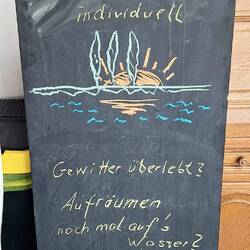 individuell
Gewitter überlebt?
Aufräumen
noch mal auf's
Wasser?